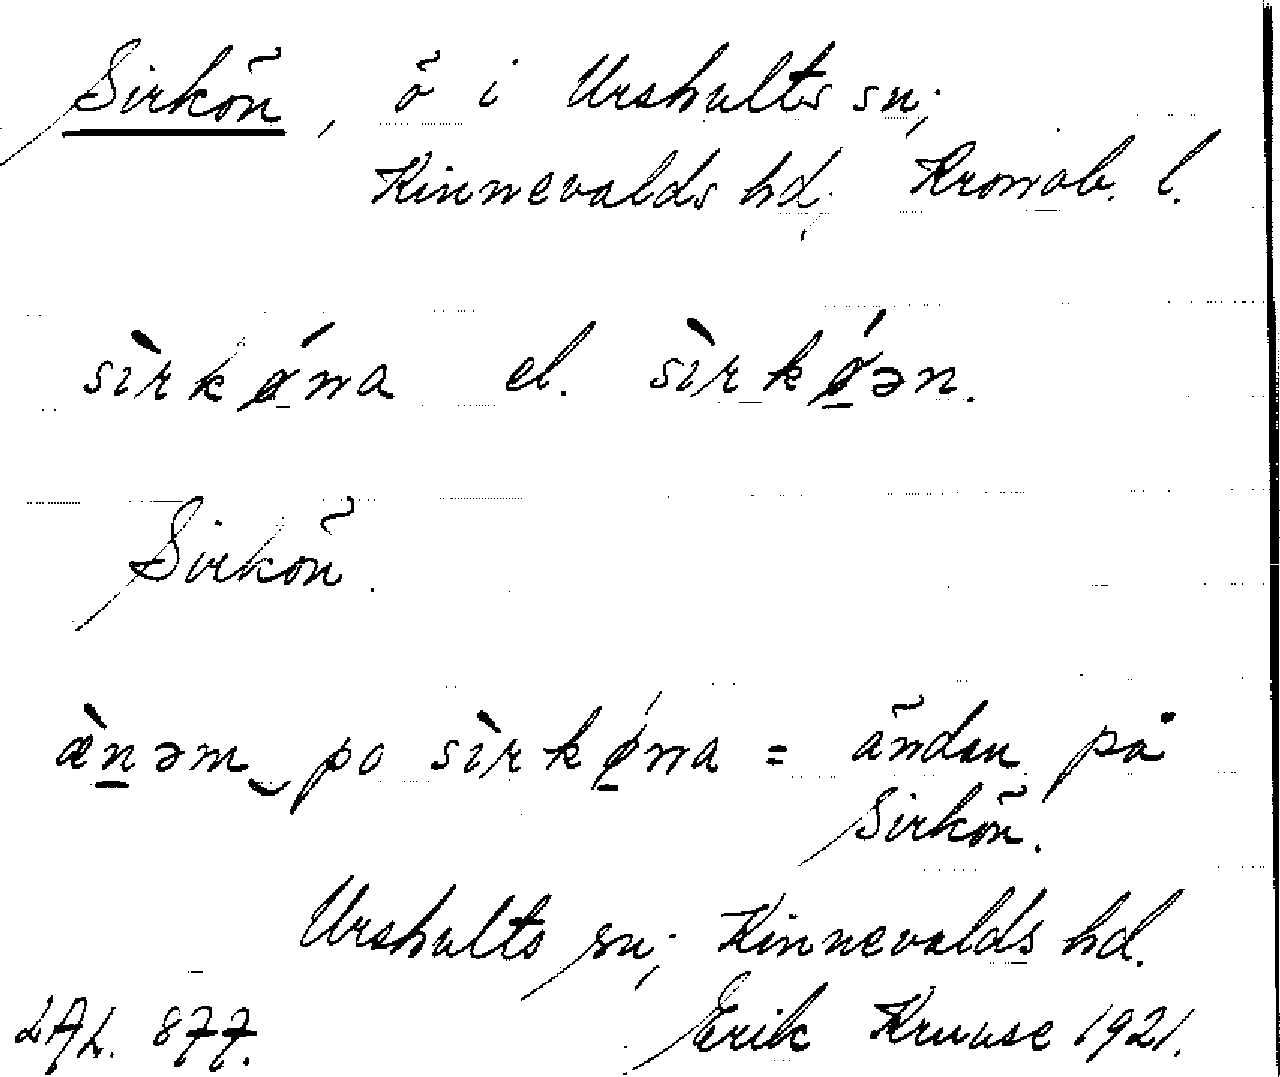 Sirkön, ö i Urshults sn;
Kinnevalds hd; Kronob. l.
sìrkǿna el. sìrkǿ̱ən.
Sirkön.
æ̀ṉəm‿po sìrkǿ̱na = ändan på
Sirkön.
Urshults sn; Kinnevalds hd.
LAL. 877. Erik Kruuse 1921.